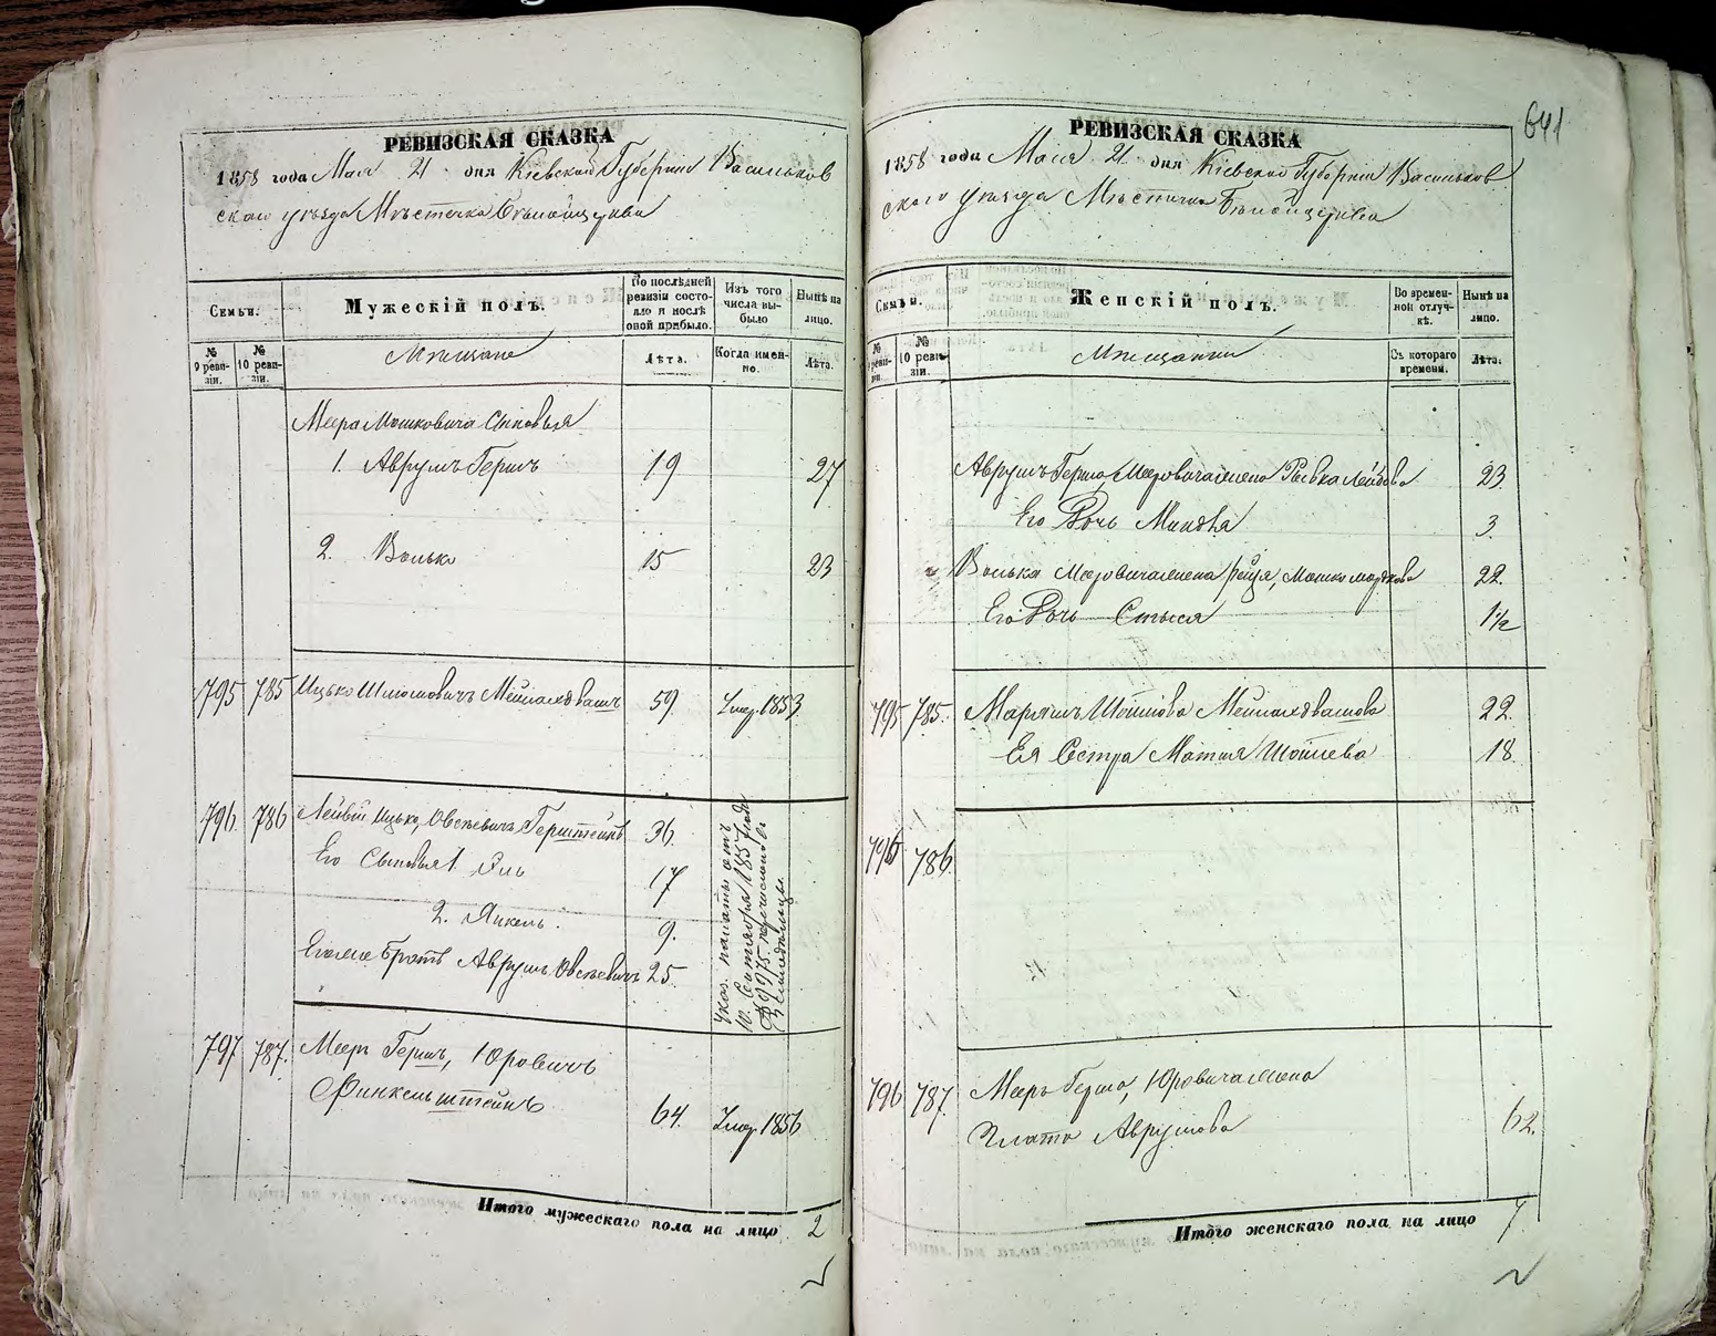 641
РЕВИЗСКАЯ СКАЗКА
1858 года Мая 21 дня Кіевской Губерніи Васильков
скаго уезда Местечка Белойцеркви
Семьи.
Мужескій полъ.
По послѣдней ревизіи состояло и послѣ оной прибыло.
Изъ того числа выбыло
Нынѣ на лицо.
№ 9 ревизіи.
№ 10 ревизіи.
Мещане
Лѣта.
Когда именно.
Лѣта.
Меера Мошковича Сыновья
1. Аврумъ Гершъ 19 27
2. Волько 15 23
795 785 Ицько Шлiомовичъ 59 Умер. 1853
796 786 Лейбъ Ицько, Овсѣевичъ Герштейнъ 36.
Его Сыновья 1. Эль 17
2. Янкель. 9.
Егоже братъ Аврумъ Овсѣевичъ 25
Указ. палаты отъ
10. Сентября 1857 года
№ 9975. перечислены въ
Земледельцы.
797 787. Мееръ Гершъ, Юровичъ
Финкельштейнъ 64. Умер. 1856
Итого мужескаго пола на лицо 2
РЕВИЗСКАЯ СКАЗКА
1858 года Мая 21 дня Кіевской Губерніи Васильков
скаго уезда Местечка Белойцеркви
Семьи.
Женскій полъ.
Во временной отлучкѣ.
Нынѣ на лицо.
№ 9 ревизіи.
№ 10 ревизіи.
Мещанки
Съ котораго времени.
Лѣта.
Аврумъ Герша, Мееровича жена Рывка Лейбова 23
Его Дочь Миндля 3.
Волька Мееровича жена Рейзя, Мошко мордкова 22.
Его Дочь Стыся 1½
795 785. Марьямъ Шоилова 22.
Ея Сестра Матля Шоилева 18.
796 786.
796 787. Мееръ Герша, Юровича жена
Злата Аврумова 62.
Итого женскаго пола на лицо 7